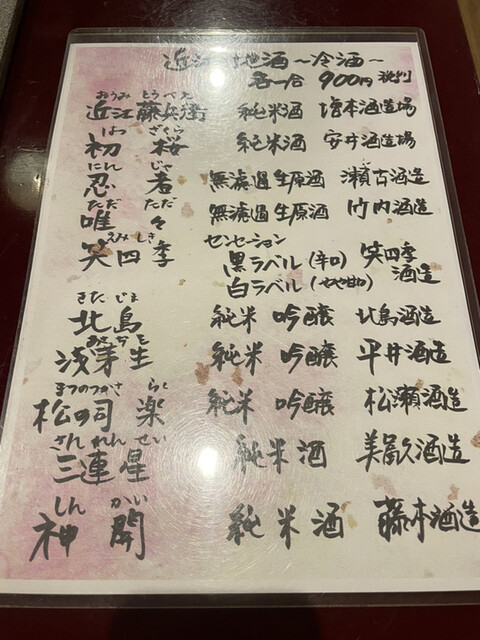 近江の地酒～冷酒～
各一合 900円 税別
おうみ とうべえ
近江藤兵衛 純米酒 増本酒造場
はつ ざくら
初桜 純米酒 安井酒造場
にん じゃ
忍者 無濾過生原酒 瀬古酒造
ただ ただ
唯々 無濾過生原酒 竹内酒造
えみしき
笑四季 センセーション
黒ラベル(辛口) 笑四季
白ラベル(やや甘口) 酒造
きた じま
北島 純米 吟醸 北島酒造
浅茅生 純米 吟醸 平井酒造
まつのつかさ らく
松の司 楽 純米 吟醸 松瀬酒造
さんれんせい
三連星 純米酒 美冨久酒造
しん かい
神開 純米酒 藤本酒造